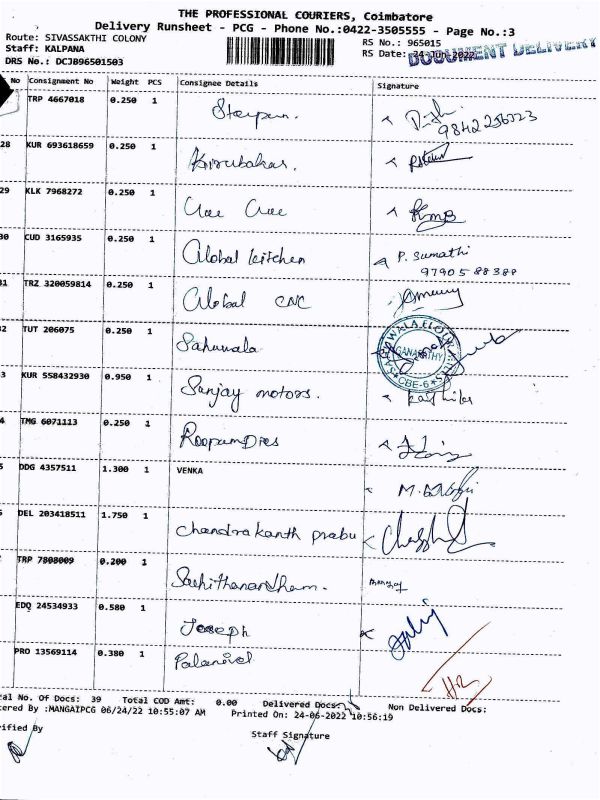 THE PROFESSIONAL COURIERS, Coimbatore
Delivery Runsheet - PCG - Phone No.:0422-3505555 - Page No.:3
Route: SIVASSAKTHI COLONY
Staff: KALPANA
DRS No.: DCJB96501503
RS No.: 965015
RS Date: 24-Jun-2022
DOCUMENT DELIVERY
No Consignment No Weight PCS Consignee Details Signature
TRP 4667018 0.250 1
9842256723
28 KUR 693618659 0.250 1 Kirubakar.
29 KLK 7968272 0.250 1
30 CUD 3165935 0.250 1 Global kitchen P. Sumathi
9790588388
31 TRZ 320059814 0.250 1 Global CNC
2 TUT 206075 0.250 1 Sahuwala
GANAPATHY
CBE-6
3 KUR 558432930 0.950 1 Sanjay motors.
4 TMG 6071113 0.250 1 Roopam Dies
5 DDG 4357511 1.300 1 VENKA
DEL 203418511 1.750 1 Chandrakanth prabu
TRP 7808009 0.200 1 Sachithanandham.
EDQ 24534933 0.580 1 Joseph
PRO 13569114 0.380 1 Palanivel
al No. Of Docs: 39 Total COD Amt: 0.00 Delivered Docs: Non Delivered Docs:
ered By :MANGAIPCG 06/24/22 10:55:07 AM Printed On: 24-06-2022 10:56:19
rified By Staff Signature